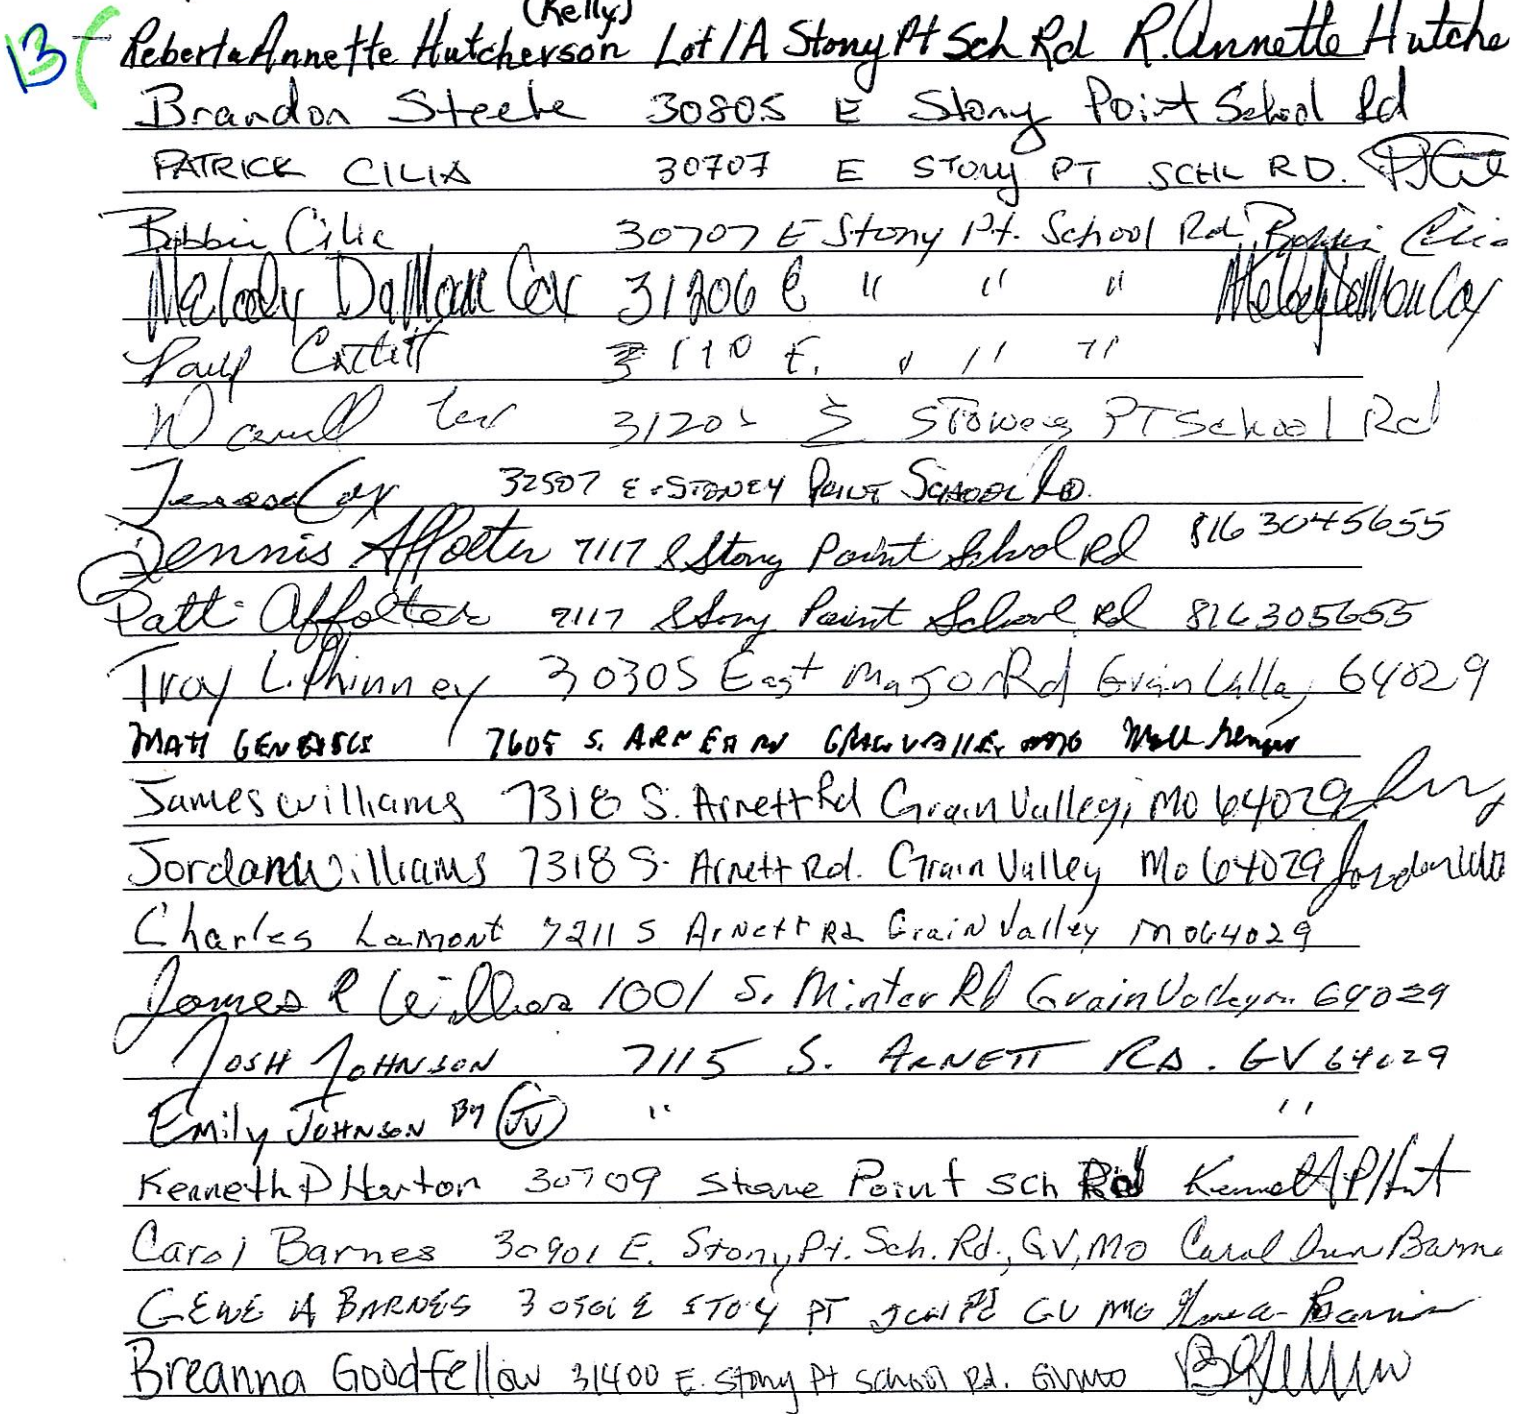 (Kelly)
B Reberta Annette Hutcherson Lot 1A Stony Pt Sch Rd R. Annette Hutche
Brandon Steele 30805 E Stony Point School Rd
PATRICK CILIA 30707 E STONY PT SCHL RD.
Bobbie Cilia 30707 E Stony Pt. School Rd Bobbie Cilia
Melody DaMon Cox 31206 E " " " Melody DaMon Cox
E. " " "
3120 PT School Rd
Cox 32507 E. STONEY POINT SCHOOL RD.
Dennis Affolter 7117 S Stony Point School Rd 816 3045655
Patti Affolter 7117 S Stony Point School Rd 816305655
Troy L. Phinney 30305 East Major Rd Grain Valley 64029
MATT 7605 S. GRAIN VALLEY
James Williams 7318 S. Arnett Rd Grain Valley, MO 64029
Jordan Williams 7318 S. Arnett Rd. Grain Valley Mo 64029 Jordan
Charles Lamont 7211 S Arnett Rd Grain Valley Mo 64029
James R 1001 S. Minter Rd Grain Valley 64029
JOSH JOHNSON 7115 S. ARNETT RD. GV 64029
Emily JOHNSON BY " "
Kenneth P Horton 30709 Stone Point Sch Rd
Carol Barnes 30901 E. Stony Pt. Sch. Rd., GV, MO Carol Ann Barne
GENE A BARNES E PT GV MO
Breanna Goodfellow 31400 E. Stony Pt School Rd. GVMO